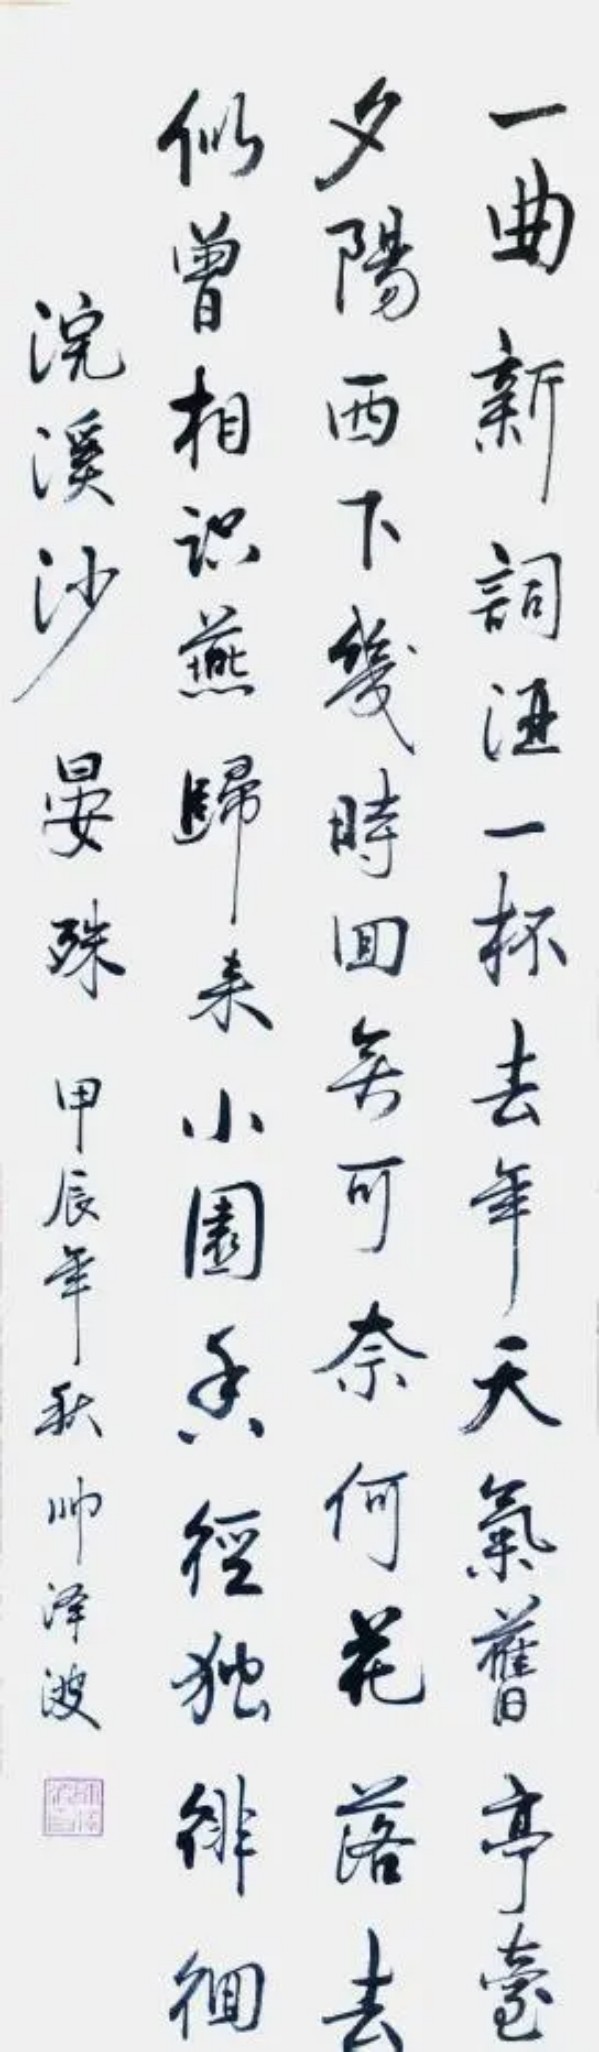 一曲新詞酒一杯去年天氣舊亭臺
夕陽西下幾時回無可奈何花落去
似曾相识燕歸来小園香徑独徘徊
浣溪沙 晏殊 甲辰年秋 帅泽波